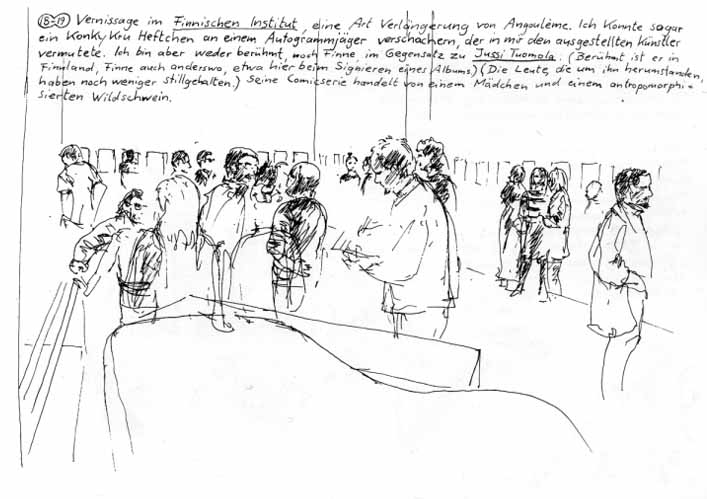 18-19 Vernissage im Finnischen Institut, eine Art Verlängerung von Angoulême. Ich konnte sogar
ein Konky Krü Heftchen an einem Autogrammjäger verschachern, der in mir den ausgestellten Künstler
vermutete. Ich bin aber weder berühmt, noch Finne im Gegensatz zu Jussi Tuomola. (Berühmt ist er in
Finnland, Finne auch anderswo, etwa hier beim Signieren eines Albums.) (Die Leute, die um ihn herumstanden,
haben noch weniger stillgehalten.) Seine Comicserie handelt von einem Mädchen und einem antropomorphi-
sierten Wildschwein.